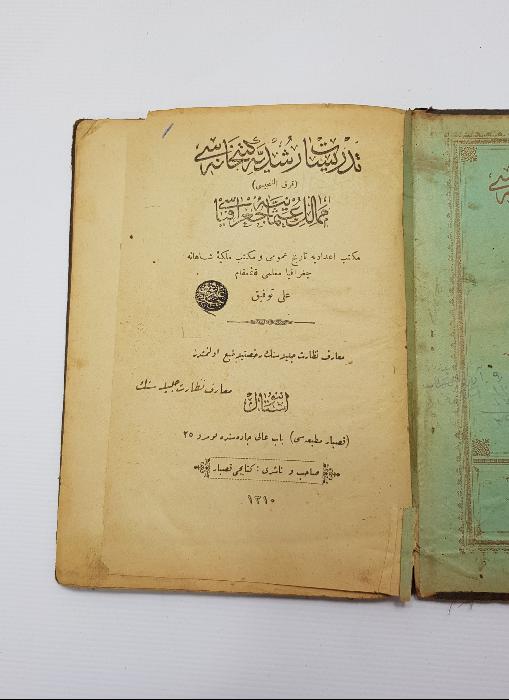 تدریسات رشدیه کتبخانه سی
ممالك عثمانیه جغرافیاسی
مکتب اعدادیه تاریخ عمومی و مکتب ملکیهٔ شاهانه
جغرافیا معلمی قائمقام
علی توفیق
معارف نظارت جلیله سنك رخصتیله طبع اولنمشدر
معارف نظارت جلیله سنك
استانبول
(قصبار مطبعه سی) باب عالی جاده سنده نومرو ٢٥
صاحب و ناشری : کتابجی قصبار
١٣١٠